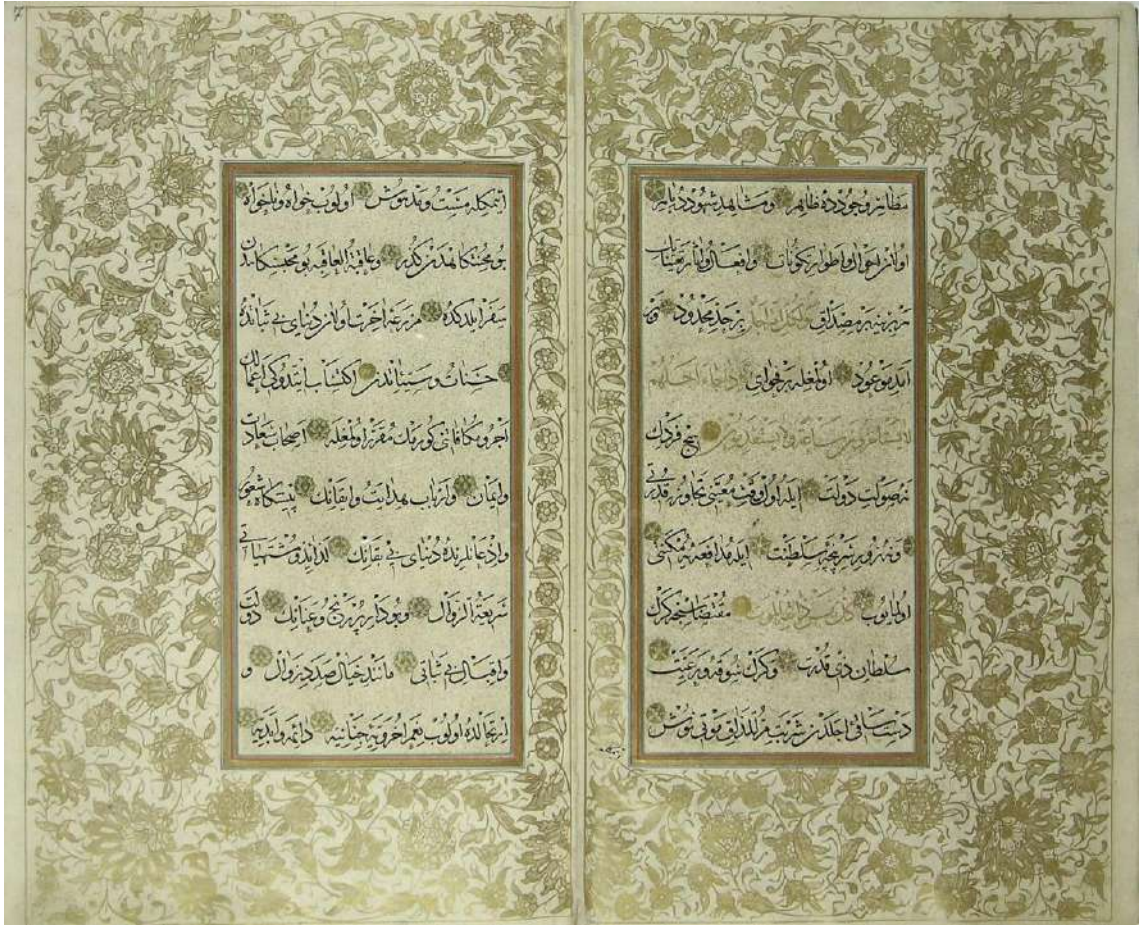 مظاهر وجودده ظاهر و مشاهد شهودده باهر
اولان احوال و اطوار تكوينات و افعال و آثار تعينات
هر برينه بر مصداق لكل اجل بر حد محدود و
امد موعود اولمغله بر فحواى اذا جاء اجلهم
لا يستأخرون ساعة ولا يستقدمون هيچ فردك
نه صولت دولت ايله اول وقت معيّنى تجاوزه قدرتى
و نه زور سرپنجه سلطنت ايله مدافعه يه مكنتى
اولمايوب كل نفس ذائقة الموت مقتضاسنجه كرك
سلطان ذى قدرت و كرك سوقه و رعيت
دست ساقئ اجلدن شربت مر المذاق موتى نوش
ايتمكله مست و مدهوش اولوب خواه و ناخواه
بو محنتكاهدن كذر و عاقبة العاقبه بو محبسكاهدن
سفر ايدكده مزرعه آخرت اولان دنياى بى ثباتده
حسنات و سيئاتدن اكتساب ايتدوكى اعمالك
اجر و مكافاتى كورمك مقرر اولمغله اصحاب سعادت
و ايمان و ارباب هدايت و ايقانك پيشكاه شعور
و اذعانلرنده دنياى بى بقانك لذائذ و مشتهياتى
سريعة الزوال و بو دار پر رنج و عنانك دولت
و اقبال بى ثباتى مانند خيال صدد زوال و
اولوب نعم اخرويه جنانيه دائمه و ابديه